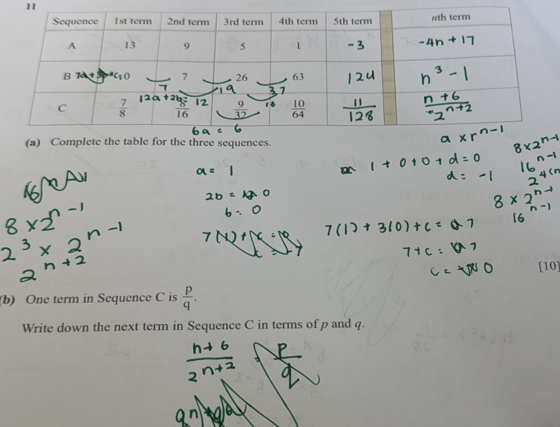 11
Sequence 1st term 2nd term 3rd term 4th term 5th term nth term
A 13 9 5 1 -3 -4n + 17
B 0 7 26 63 124 n³ - 1
7 19 37
C 7/8 8/16 9/32 10/64 11/128 n+6/2ⁿ⁺²
12a + 2b = 12 18
6a = 6
(a) Complete the table for the three sequences.
a × rⁿ⁻¹
a = 1
1 + 0 + 0 + d = 0
d = -1
8 × 2ⁿ⁻¹
16ⁿ⁻¹
2b = 0
b = 0
8 × 2ⁿ⁻¹
16ⁿ⁻¹
8 × 2ⁿ⁻¹
2³ × 2ⁿ⁻¹
2ⁿ⁺²
7(1) + 3(0) + c = 7
7 + c = 7
c = 0
[10]
(b) One term in Sequence C is p/q.
Write down the next term in Sequence C in terms of p and q.
n+6/2ⁿ⁺² = p/q